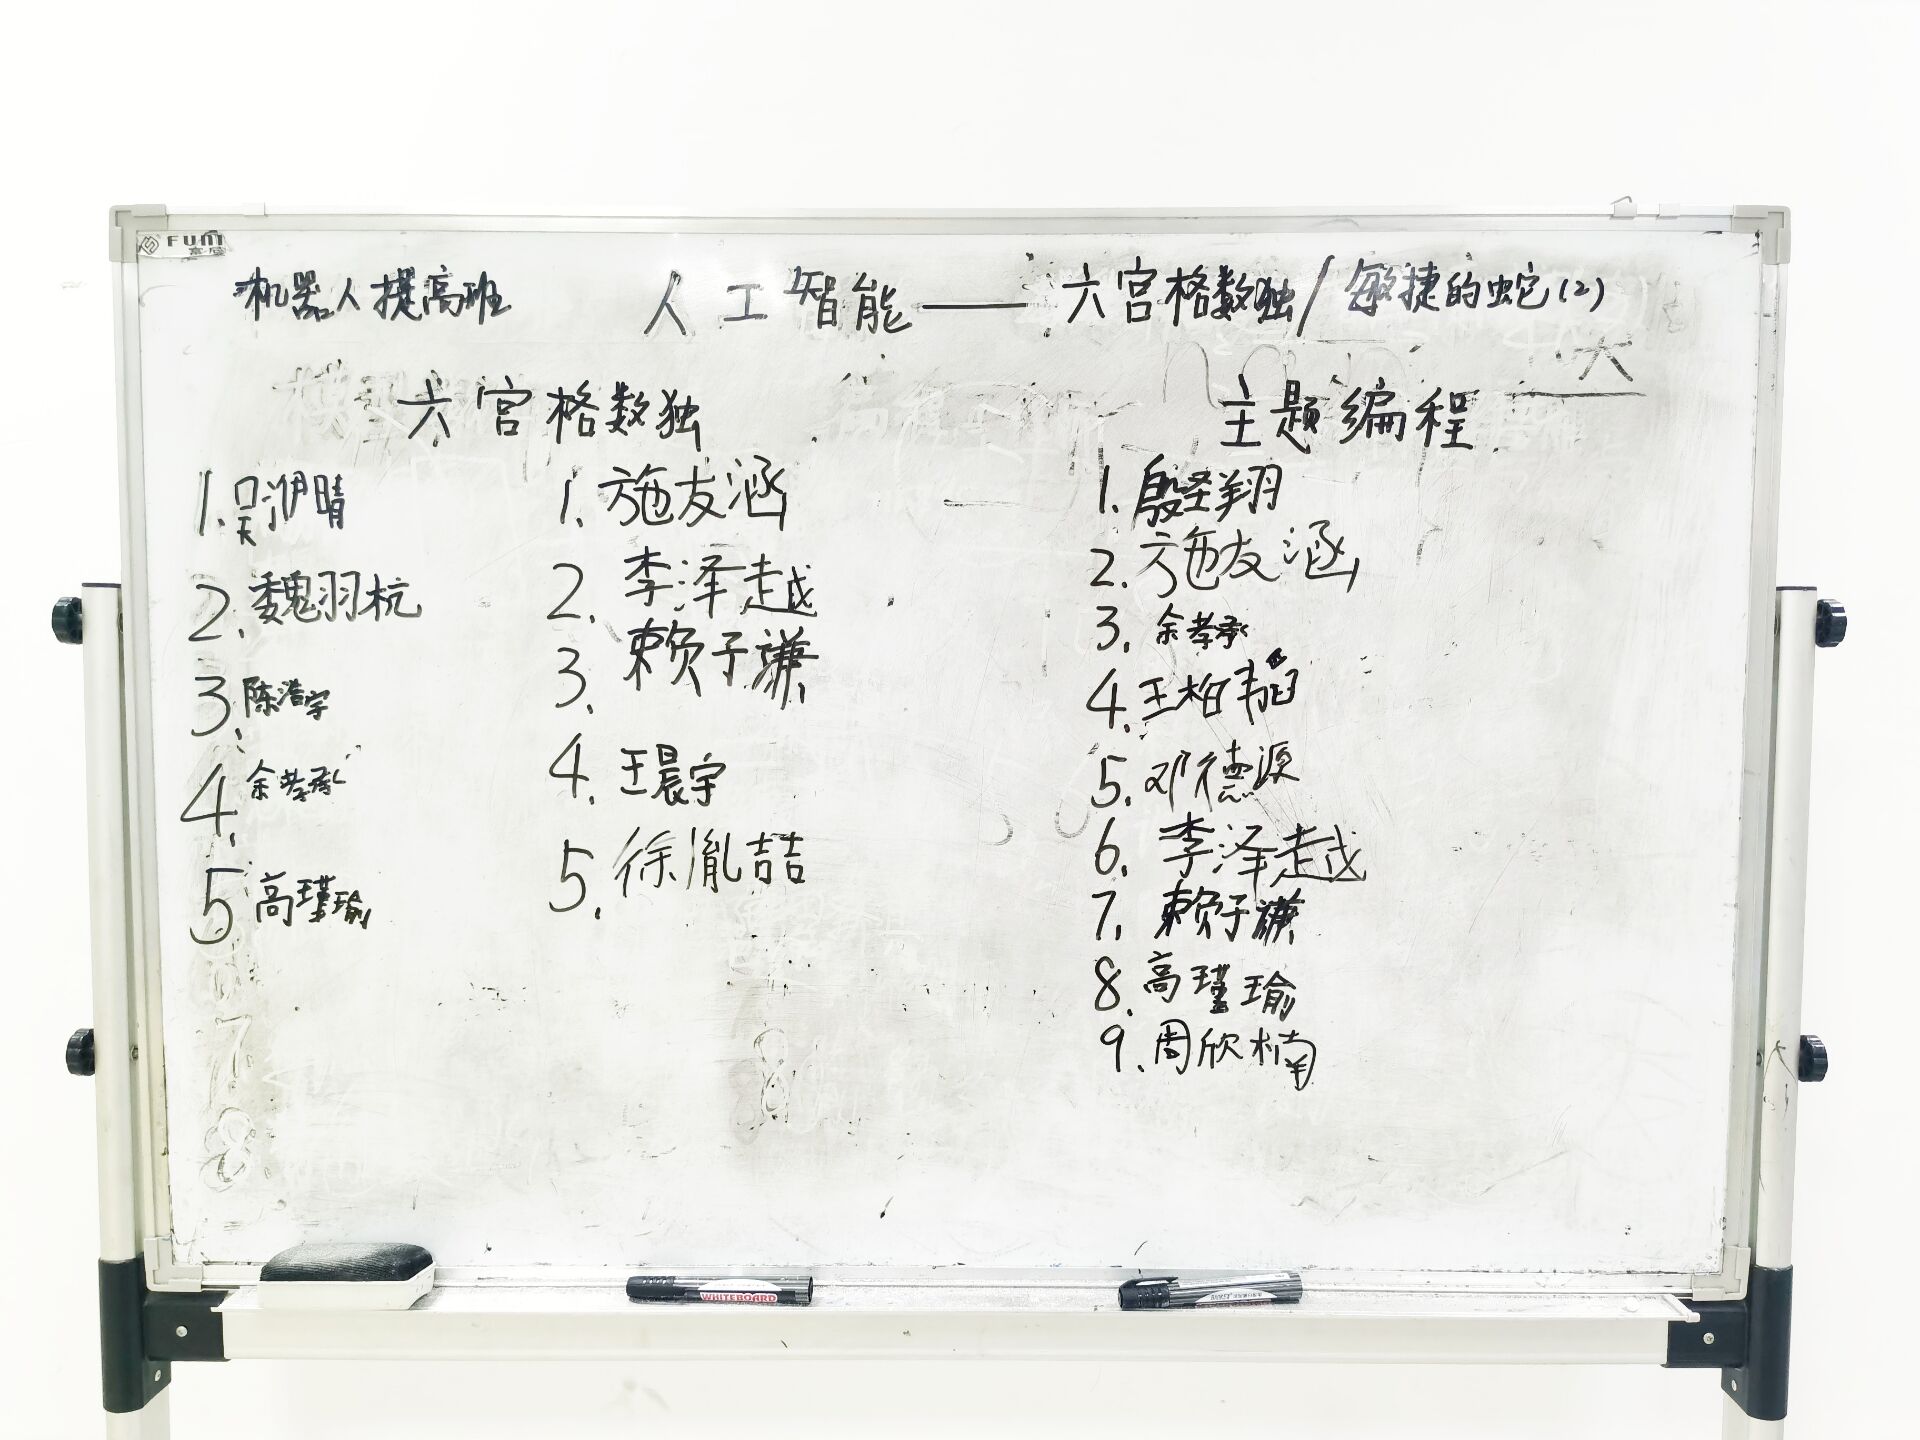 FUNI
机器人提高班
人工智能——六宫格数独/敏捷的蛇(2)
六宫格数独
1.吴湘晴
2.魏羽杭
3.陈浩宇
4.余孝承
5 高瑾瑜
1.施友涵
2.李泽越
3.赖子谦
4.王晨宇
5.徐胤喆
主题编程
1.殷圣翔
2.施友涵
3.余孝承
4.王柏韬
5.邓德源
6.李泽越
7.赖子谦
8.高瑾瑜
9.周欣楠
WHITEBOARD